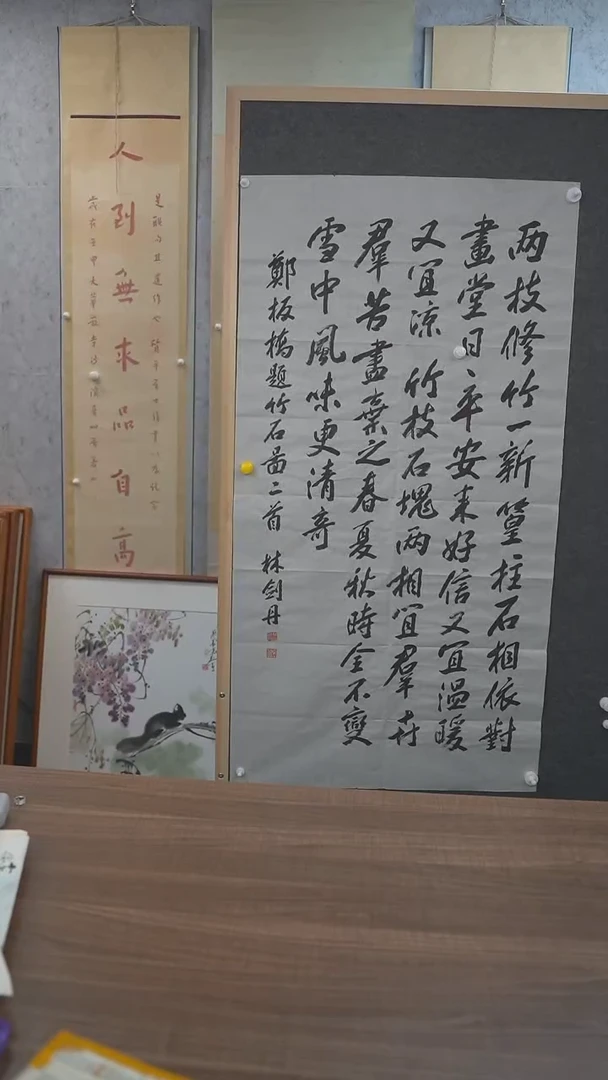 两枝修竹一新篁柱石相依對
畫堂日、平安来好信又宜温暖
又宜涼 竹枝石塊两相宜羣卉
羣芳盡棄之春夏秋時全不變
雪中風味更清奇
鄭板橋題竹石啚二首 林劍丹
人到無求品自高